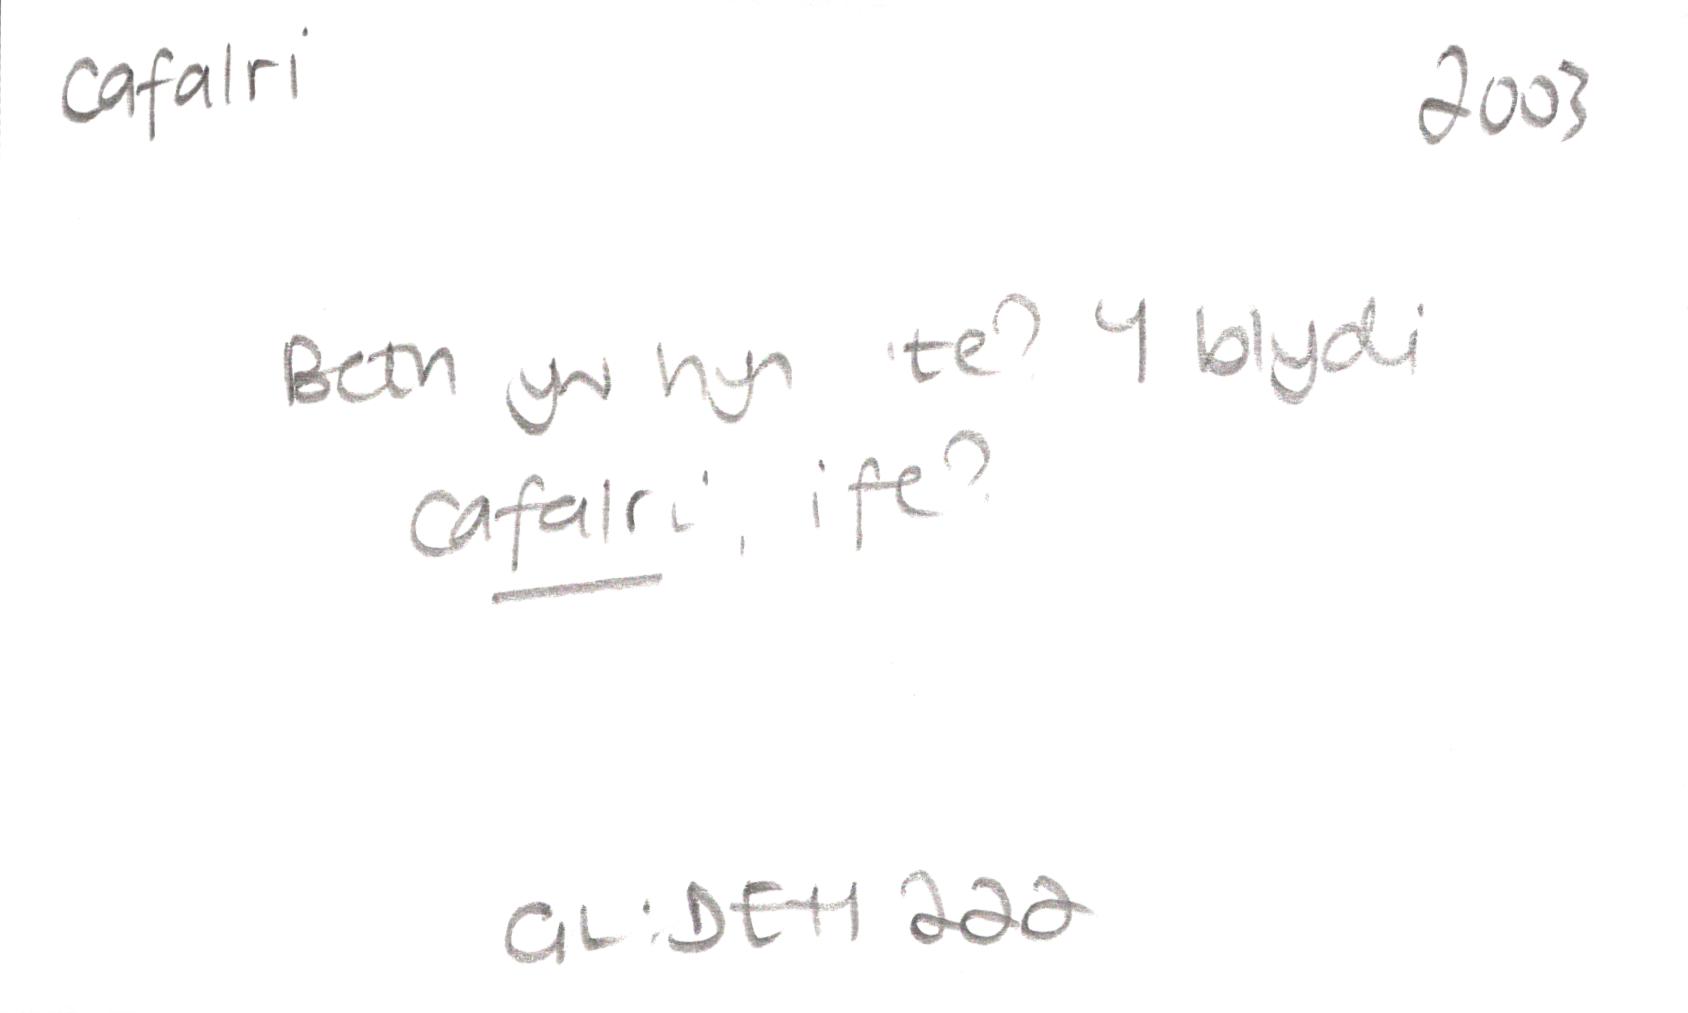 cafalri 2003
Beth yw hyn 'te? Y blydi
cafalri, ife?
GL:DEH 222